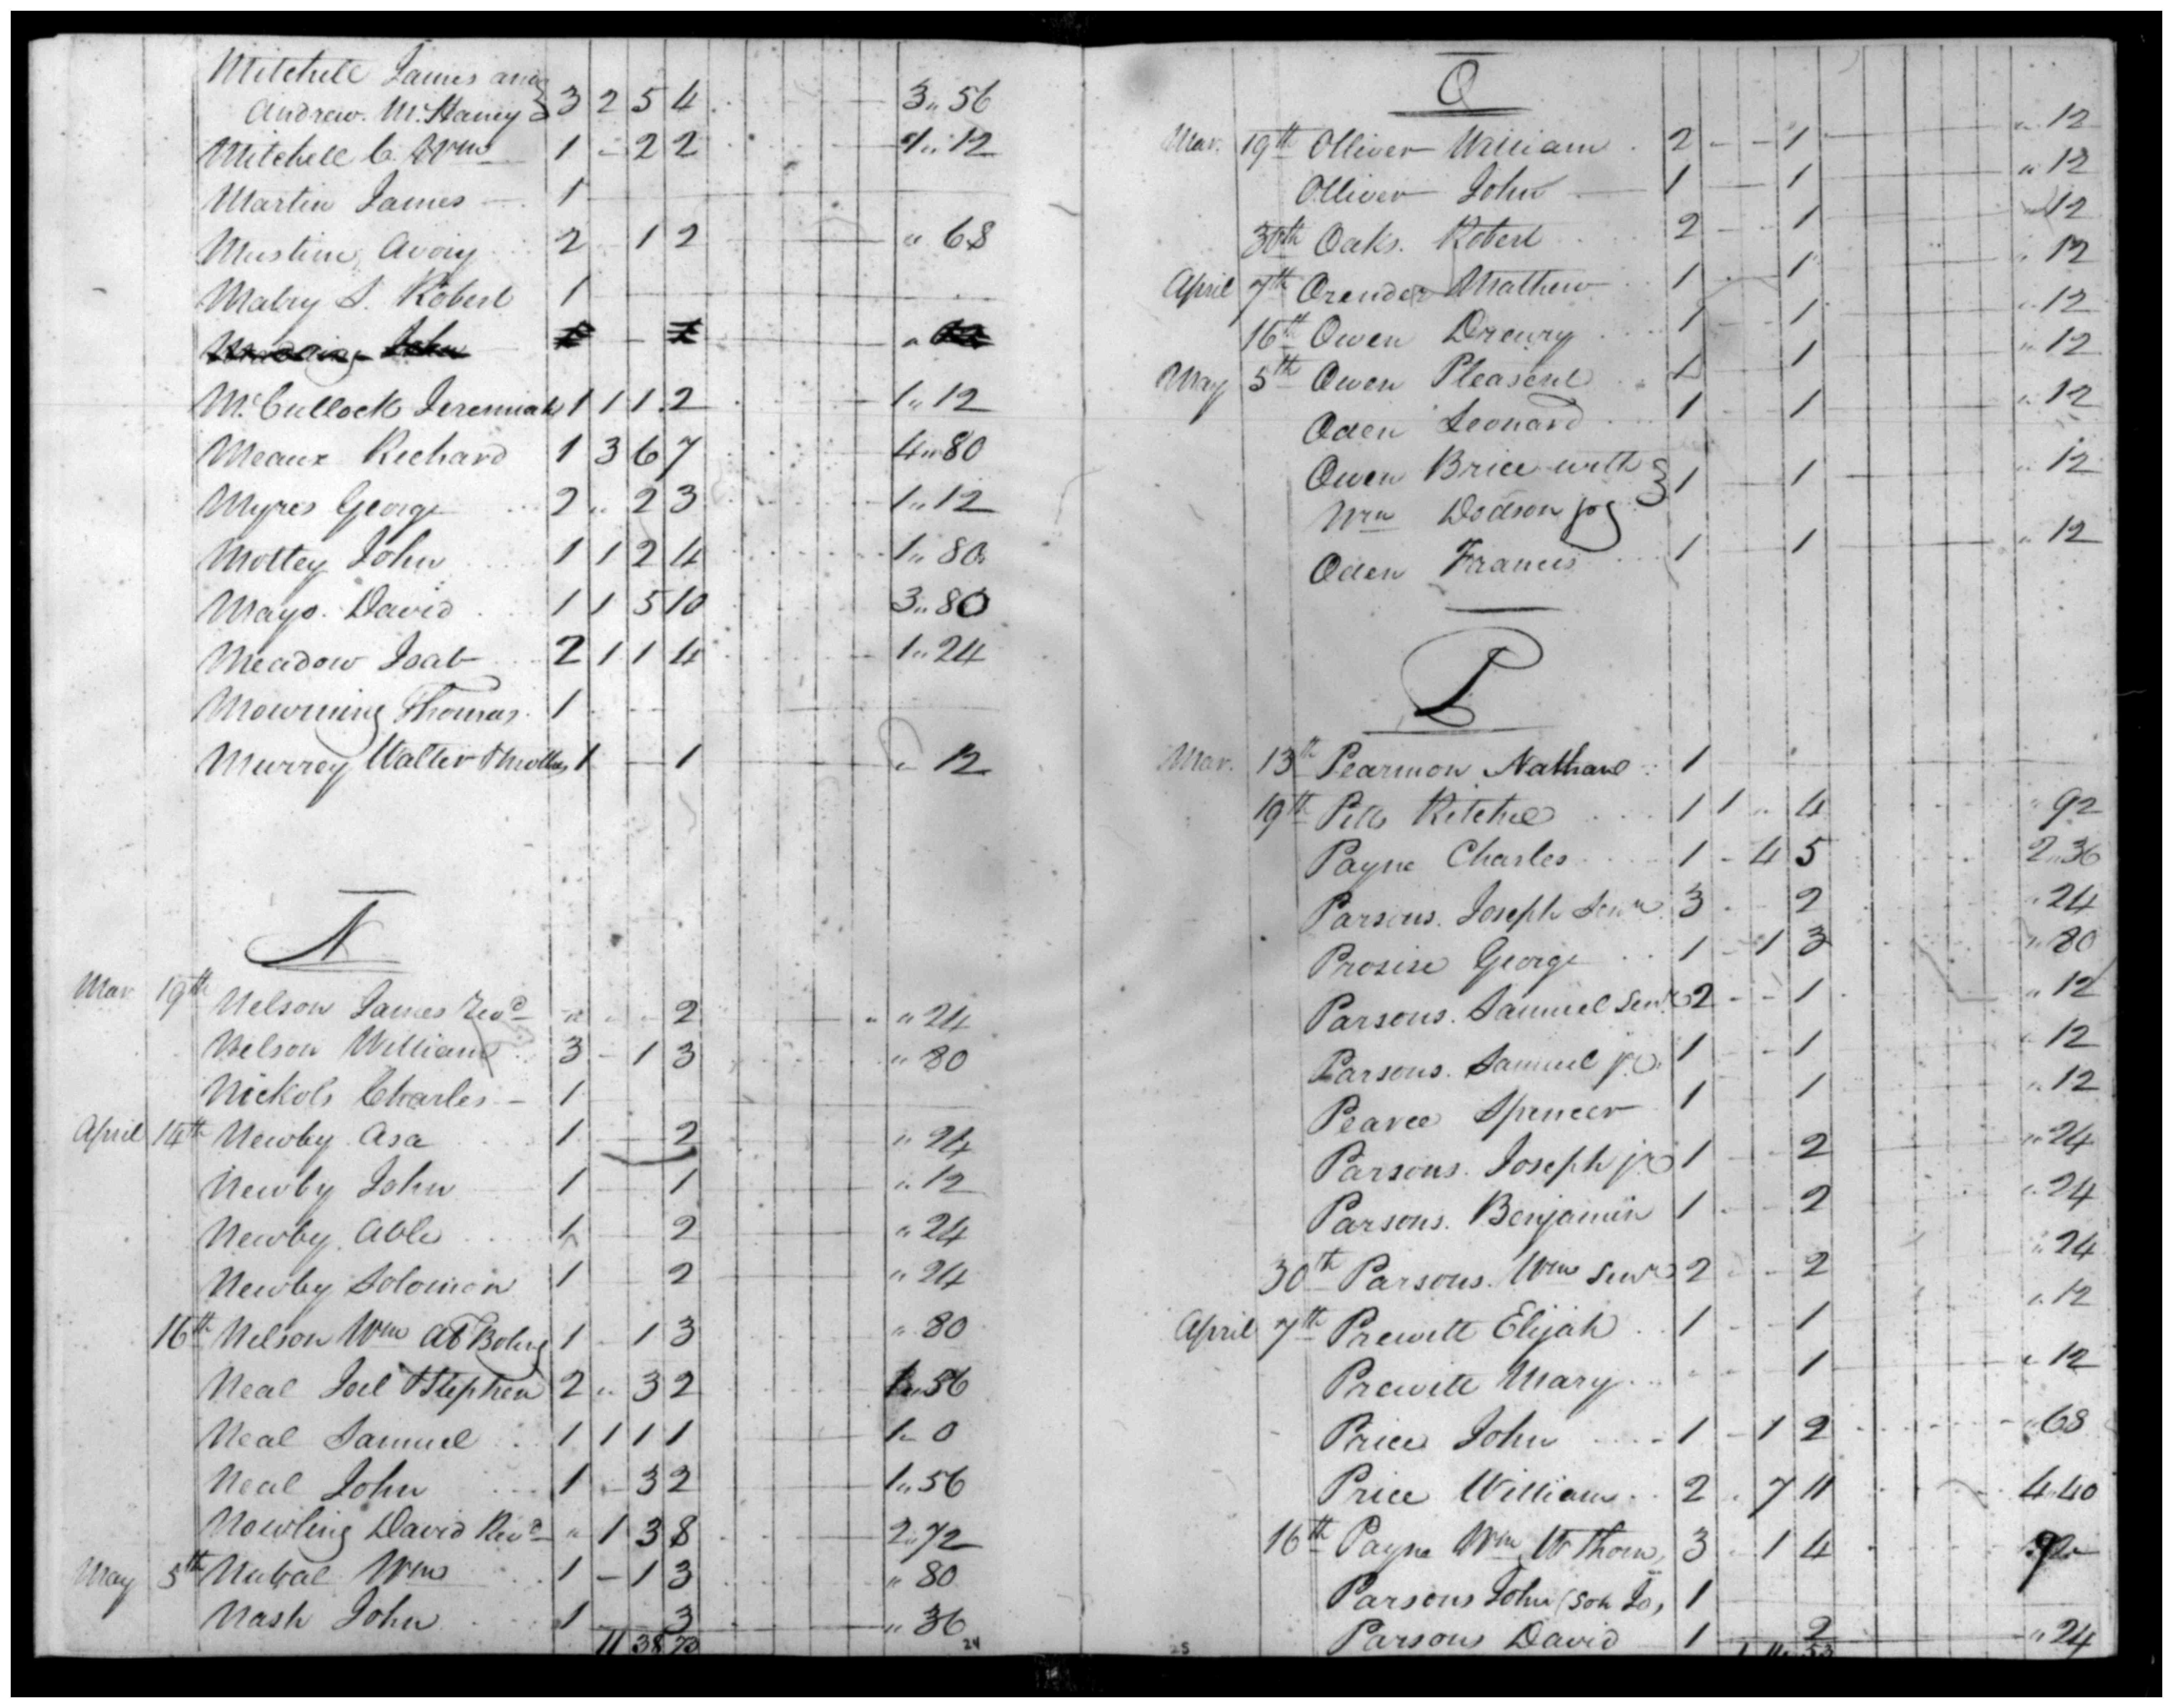 Mitchell James and
Andrew McHaney } 3 2 5 4 3 " 56
Mitchell C. Wm 1 - 2 2 1 " 12
Martin James 1
Mustin Avory 2 1 2 " 68
Mabry S. Robert 1
John
McCullock Jeremiah 1 1 1 2 1 " 12
Meaux Richard 1 3 6 7 4 " 80
Myres George 2 " 2 3 1 " 12
Mottey John 1 1 2 4 1 " 80
Mayo David 1 1 5 10 3 " 80
Meadow Joab 2 1 1 4 1 " 24
Mourning Thomas 1
Murrey Walter 1 - 1 " 12
N
Mar 19th Nelson James Revd " - - 2 " 24
Nelson William 3 - 1 3 " 80
Nickols Charles - 1
April 14th Newby Asa 1 2 " 24
Newby John 1 1 " 12
Newby Able 1 2 " 24
Newby Solomon 1 2 " 24
16th Nelson Wm at Boling 1 - 1 3 " 80
Neal Joel & Stephen 2 " 3 2 1 " 56
Neal Samuel 1 1 1 1 1 - 0
Neal John 1 - 3 2 1 " 56
Nowling David Revd " 1 3 8 2 " 72
May 5th Wm 1 - 1 3 " 80
Nash John 1 3 " 36
11 38 73
24
O
Mar. 19th Olliver William 2 - - 1 " 12
Olliver John 1 - 1 " 12
30th Oaks Robert 2 - 1 " 12
April 7th Orender Mathew 1 - 1 " 12
16th Owen Drewry 1 - 1 " 12
May 5th Owen Pleasent 1 1 " 12
Oden Leonard 1 1 " 12
Owen Brice with } 1 1 " 12
Wm Dodson jr
Oden Francis 1 1 " 12
P
Mar. 13th Pearmon Nathan 1
19th Pitts Ritchel 1 1 " 4 " 92
Payne Charles 1 - 4 5 2 " 36
Parsons Joseph Senr 3 - 2 " 24
Prosise George 1 - 1 3 " 80
Parsons Samuel Senr 2 - - 1 " 12
Parsons Samuel jr 1 - - 1 " 12
Pearce Spencer 1 1 " 12
Parsons Joseph jr 1 - - 2 " 24
Parsons Benjamin 1 - 2 " 24
30th Parsons Wm Senr 2 - - 2 " 24
April 7th Prewitt Elijah 1 - 1 " 12
Prewitt Mary - - 1 " 12
Price John 1 - 1 2 " 68
Price William 2 . 7 11 4 " 40
16th Payne Wm W Thom 3 - 1 4 " 92
Parsons John (son Jos 1
Parsons David 1 2 " 24
25